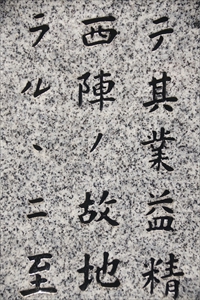 テ其業益精
西陣ノ故地
ラル、ニ至